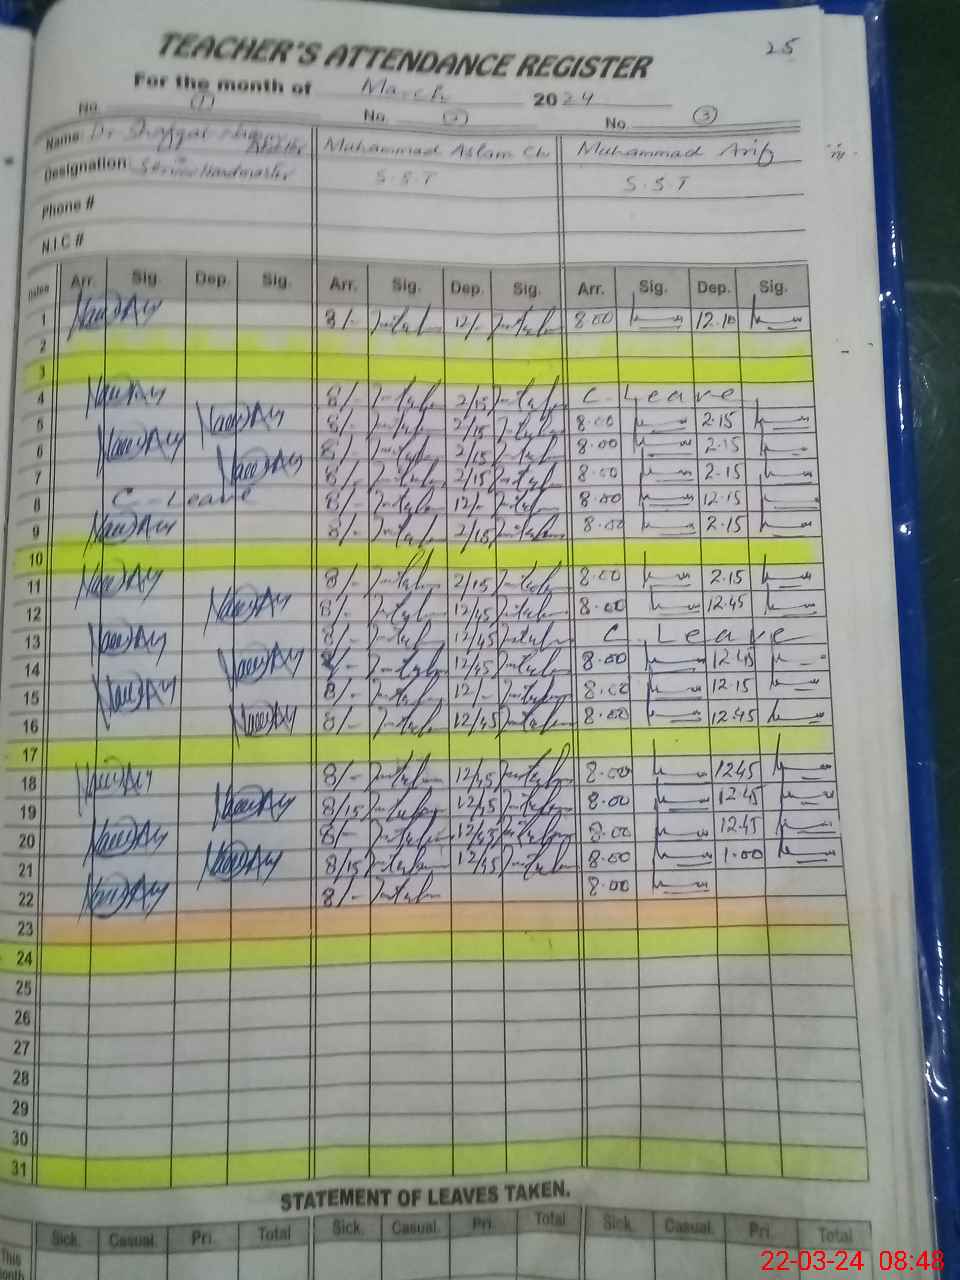 25
TEACHER'S ATTENDANCE REGISTER
For the month of March 2024
No. 1 No. 2 No. 3
Name: Dr Muhammad Aslam Ch Muhammad Arif
Designation: Senior Headmaster S.S.T S.S.T
Phone #
N.I.C #
Dates Arr. Sig. Dep. Sig. Arr. Sig. Dep. Sig. Arr. Sig. Dep. Sig.
1 8/- 12/- 8.00 12.10
2
3
4 8/- 2/15 C. Leave
5 8/- 2/15 8.00 2.15
6 8/- 2/15 8.00 2.15
7 8/- 2/15 8.00 2.15
8 C - Leave 8/- 12/- 8.00 12.15
9 8/- 2/15 8.00 2.15
10
11 8/- 2/15 8.00 2.15
12 8/- 12/45 8.00 12.45
13 8/- 12/45 C. Leave
14 8/- 12/45 8.00 12.45
15 8/- 12/- 8.00 12.15
16 8/- 12/45 8.00 12.45
17
18 8/- 12/45 8.00 1245
19 8/15 12/45 8.00 12.45
20 8/- 12/45 8.00 12.45
21 8/15 12/45 8.00 1.00
22 8/- 8.00
23
24
25
26
27
28
29
30
31
STATEMENT OF LEAVES TAKEN.
Sick. Casual. Pri. Total Sick. Casual. Pri. Total Sick. Casual. Pri. Total
This
22-03-24 08:48